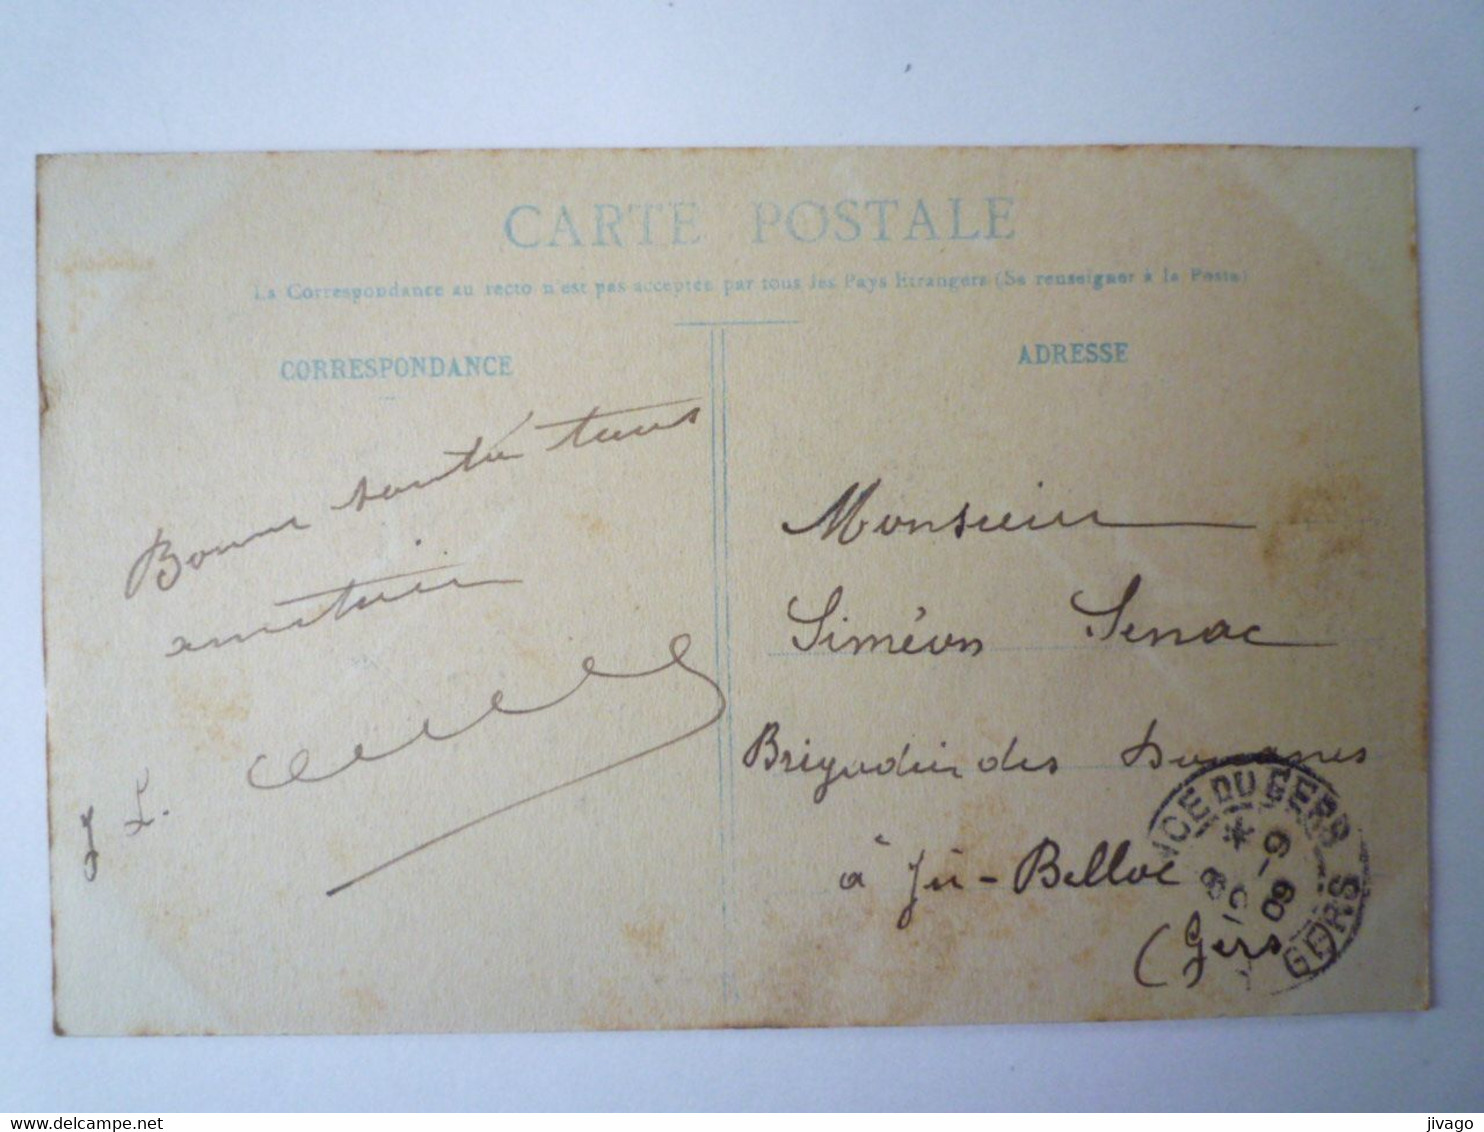 CARTE POSTALE
La Correspondance au recto n'est pas acceptée par tous les Pays Etrangers (Se renseigner à la Poste)
CORRESPONDANCE
Bonne santé tous
amitiés
J L.
ADRESSE
Monsieur
Siméon Senac
Brigadier des Douanes
à Jû-Belloc
(Gers
NCE DU GERS
6-9
09
GERS
delcampe.net
jivago